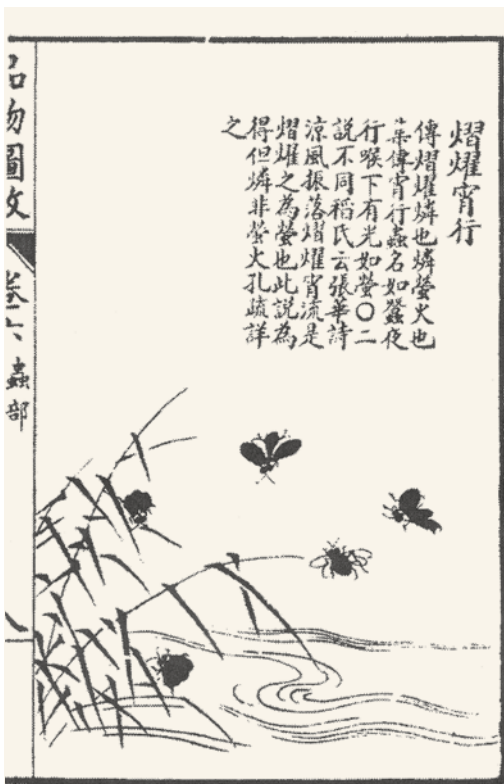 熠燿宵行
傳熠燿燐也燐螢火也
集傳宵行蟲名如蠶夜
行喉下有光如螢〇二
說不同稻氏云張華詩
涼風振落熠燿宵流是
熠燿之為螢也此說為
得但燐非螢火孔疏詳
之
品物圖攷
卷六 蟲部